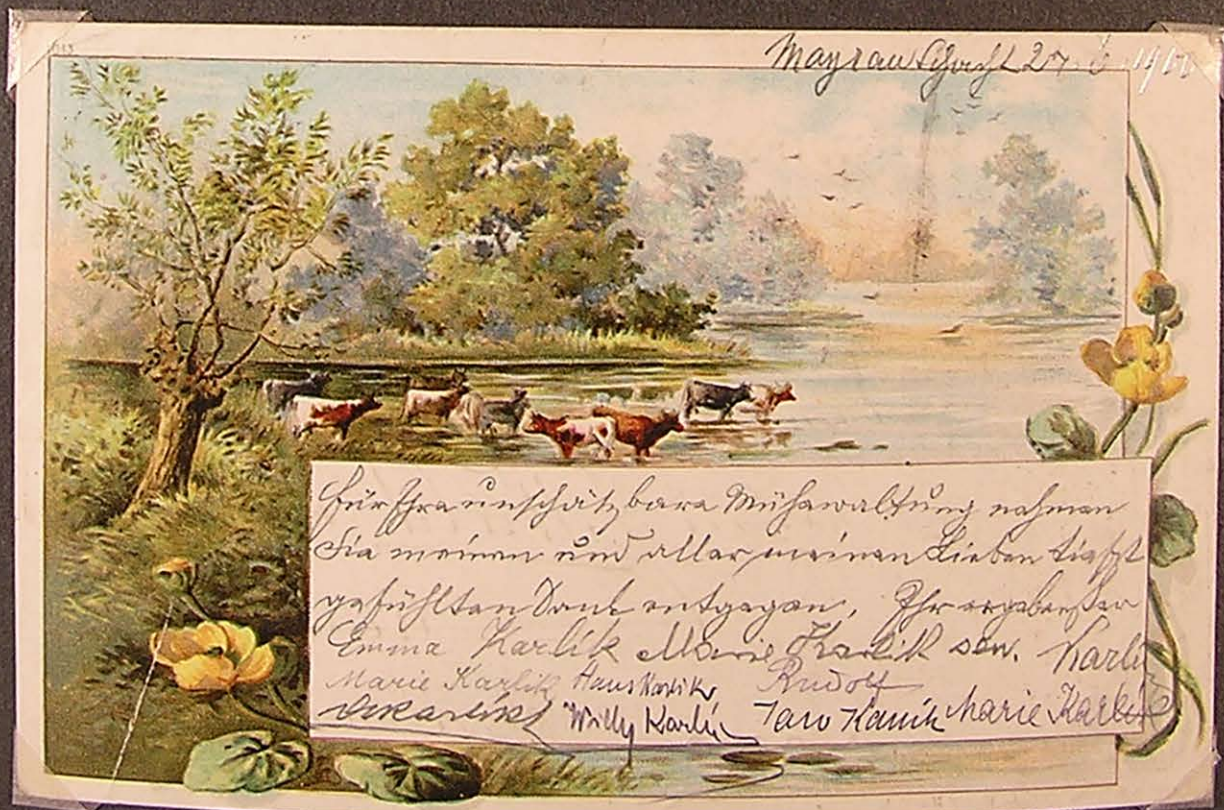 Mayrau Schacht 27
für Ihre unschätzbare Mühewaltung nehmen
Sie meinen und aller meinen Lieben tiefst
gefühlten Dank entgegen, Ihr ergebenster
Emma Karlik Marie Karlik sen. Karlik
Marie Karlik Hans Karlik Rudolf
Willy Karlik Marie Karlik